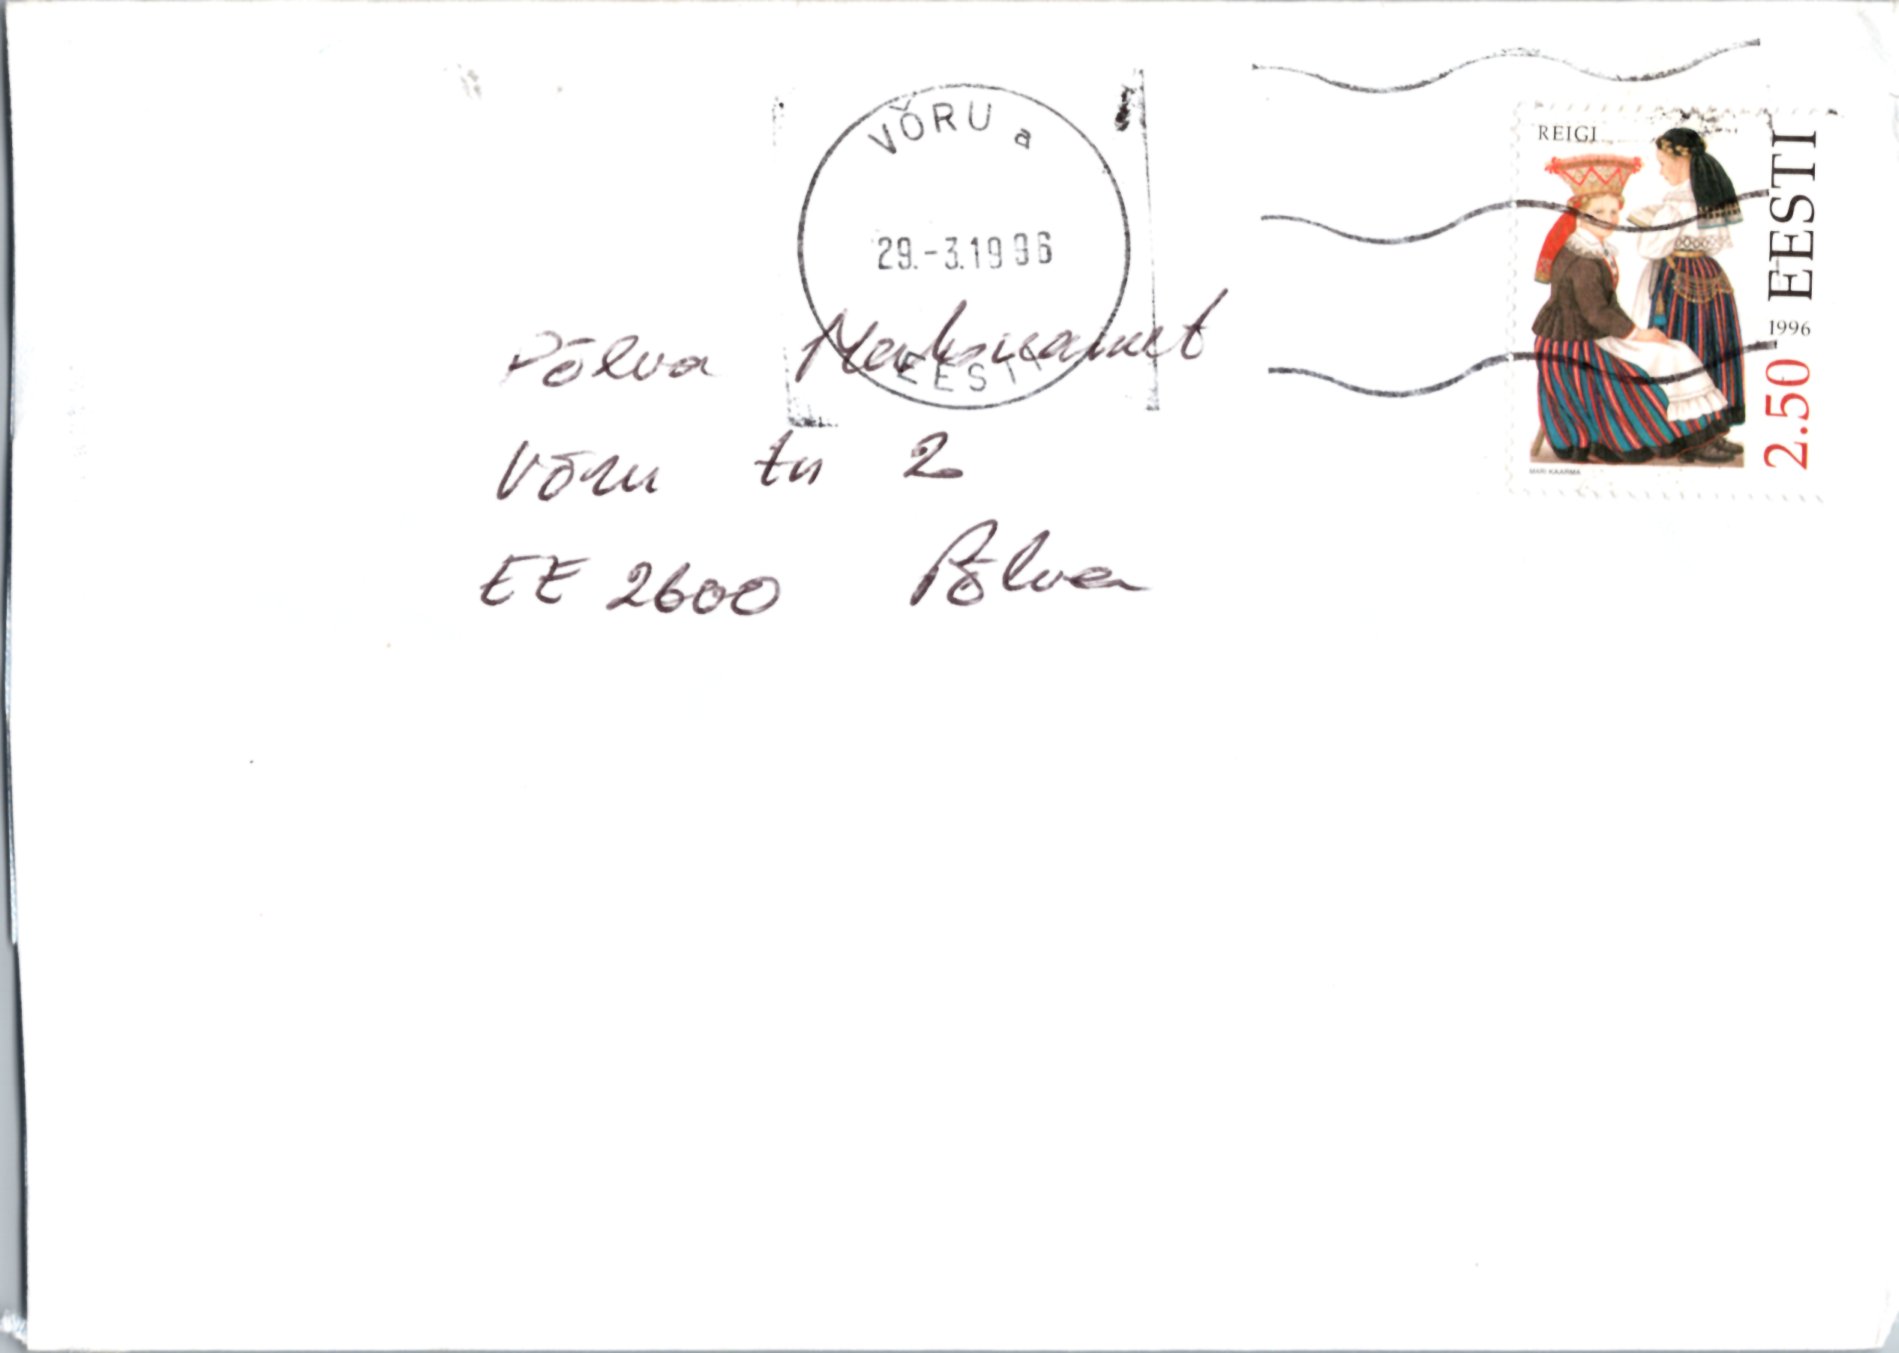 VÕRU a
29.-3.1996
EESTI
REIGI
EESTI
1996
2.50
MARI KAARMA
Põlva Maksuamet
Võru tn 2
EE 2600 Põlva